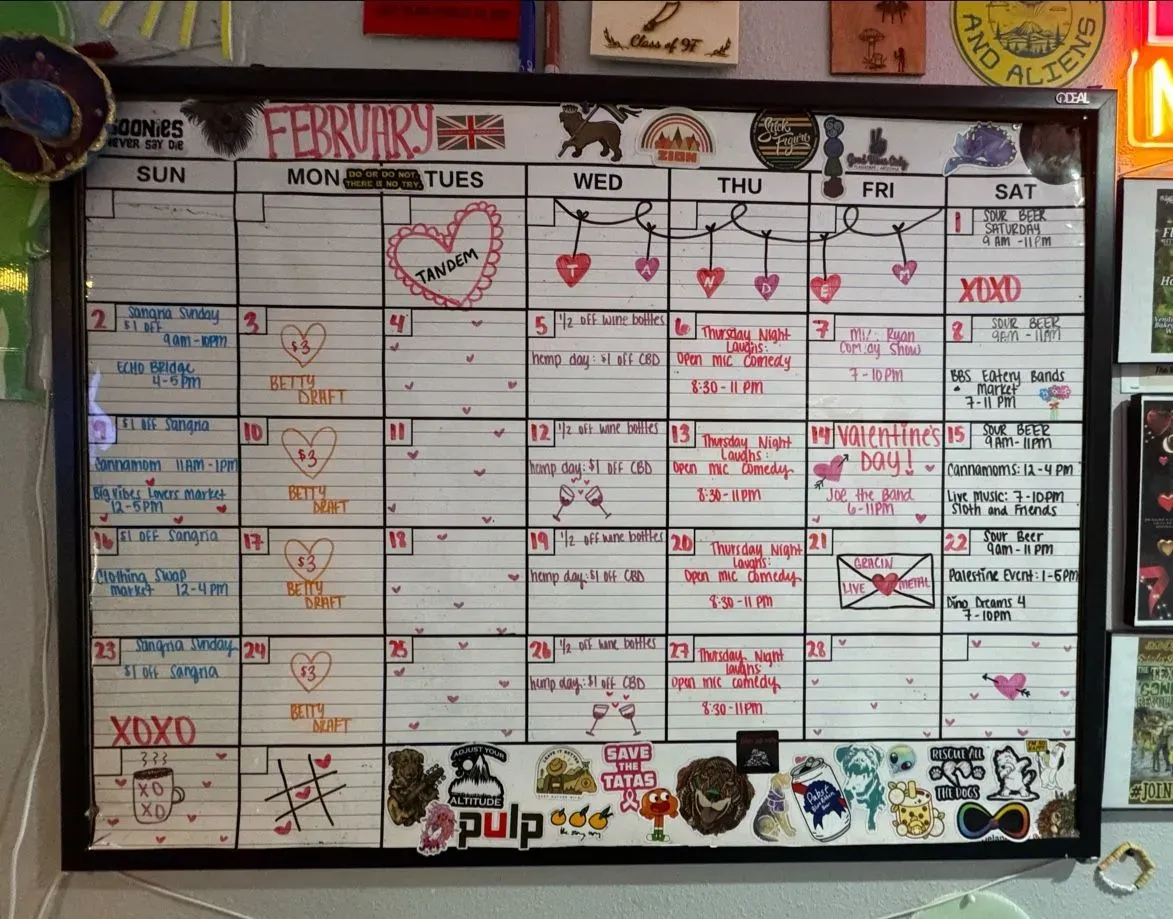 Class of 97
AND ALIENS
GOONIES
NEVER SAY DIE
FEBRUARY
ZION
Stick Figure
Good Vibes Only
SUN
MON
DO OR DO NOT.
THERE IS NO TRY.
TUES
WED
THU
FRI
SAT
TANDEM
T A N D E M
1 SOUR BEER
SATURDAY
9 AM - 11PM
XOXO
2 Sangria Sunday
$1 OFF
9am - 10pm
ECHO BRIDGE
4-5 PM
3
$3
BETTY
DRAFT
4
5 1/2 off wine bottles
hemp day: $1 off CBD
6 Thursday Night
Laughs:
Open mic comedy
8:30 - 11 PM
7
Ryan
Comedy Show
7 - 10PM
8 SOUR BEER
9AM - 11AM
BBS Eatery Bands
Market
7-11 PM
9 $1 off Sangria
Cannamom 11AM - 1PM
Big Vibes Lovers market
12-5PM
10
$3
BETTY
DRAFT
11
12 1/2 off wine bottles
hemp day: $1 off CBD
13 Thursday Night
Laughs:
Open mic comedy
8:30 - 11PM
14 Valentine's
DAY!
Joe the Band
6-11PM
15 SOUR BEER
9AM - 11PM
Cannamoms: 12-4 PM
Live Music: 7-10pm
Sloth and Friends
16 $1 off Sangria
Clothing Swap
market 12-4 PM
17
$3
BETTY
DRAFT
18
19 1/2 off wine bottles
hemp day: $1 off CBD
20 Thursday Night
Laughs:
Open mic comedy
8:30 - 11 PM
21
GRACIN
LIVE METAL
22 Sour Beer
9am - 11 PM
Palestine Event: 1-5pm
Dino Dreams 4
7-10PM
23 Sangria Sunday
$1 off Sangria
XOXO
24
$3
BETTY
DRAFT
25
26 1/2 off wine bottles
hemp day: $1 off CBD
27 Thursday Night
laughs:
Open mic comedy
8:30 - 11pm
28
XO
XO
ADJUST YOUR
ALTITUDE
pulp
SAVE
THE
TATAS
Pabst
RESCUE ALL
THE DOGS
#JOIN